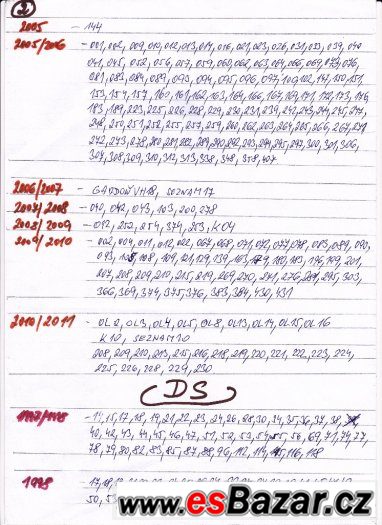 2
2005 - 144
2005/2006 - 001, 002, 009, 010, 012, 013, 014, 016, 021, 023, 026, 031, 033, 039, 040
041, 045, 052, 056, 057, 059, 060, 062, 063, 064, 066, 069, 073, 076
081, 083, 084, 089, 093, 094, 095, 096, 097, 100, 102, 147, 150, 151
153, 154, 157, 160, 161, 162, 163, 164, 166, 167, 169, 171, 172, 173, 176
183, 189, 223, 225, 226, 228, 229, 230, 231, 239, 242, 243, 244, 245, 247
248, 250, 251, 252, 255, 257, 259, 260, 262, 263, 264, 265, 266, 267, 271
272, 273, 278, 280, 281, 282, 289, 290, 292, 293, 294, 295, 297, 300, 301, 306
307, 308, 309, 310, 312, 313, 338, 348, 358, 407
2006/2007 - GADDOW VH18, SEZNAM 17
2007/2008 - 040, 042, 043, 103, 200, 278
2008/2009 - 012, 252, 254, 374, 253, K04
2009/2010 - 002, 004, 011, 012, 022, 067, 068, 071, 072, 077, 078, 083, 089, 090
207, 208, 209, 210, 215, 219, 269, 270, 271, 276, 295, 303
366, 369, 374, 375, 376, 383, 384, 430, 431
2010/2011 - OL2, OL3, OL4, OL5, OL8, OL13, OL14, OL15, OL16
K10, SEZNAM 10
208, 209, 210, 213, 215, 216, 218, 219, 220, 221, 222, 223, 224
225, 226, 228, 229, 230
DS
1997/1998 - 15, 17, 18, 19, 21, 22, 23, 24, 26, 28, 30, 34, 35, 36, 37, 38
40, 42, 43, 44, 45, 46, 47, 51, 52, 53, 54, 55, 56, 69, 71, 74, 77
78, 79, 80, 82, 83, 85, 87, 88, 96, 112, 114, 115, 116, 118
1998
50, 53
www.esBazar.cz